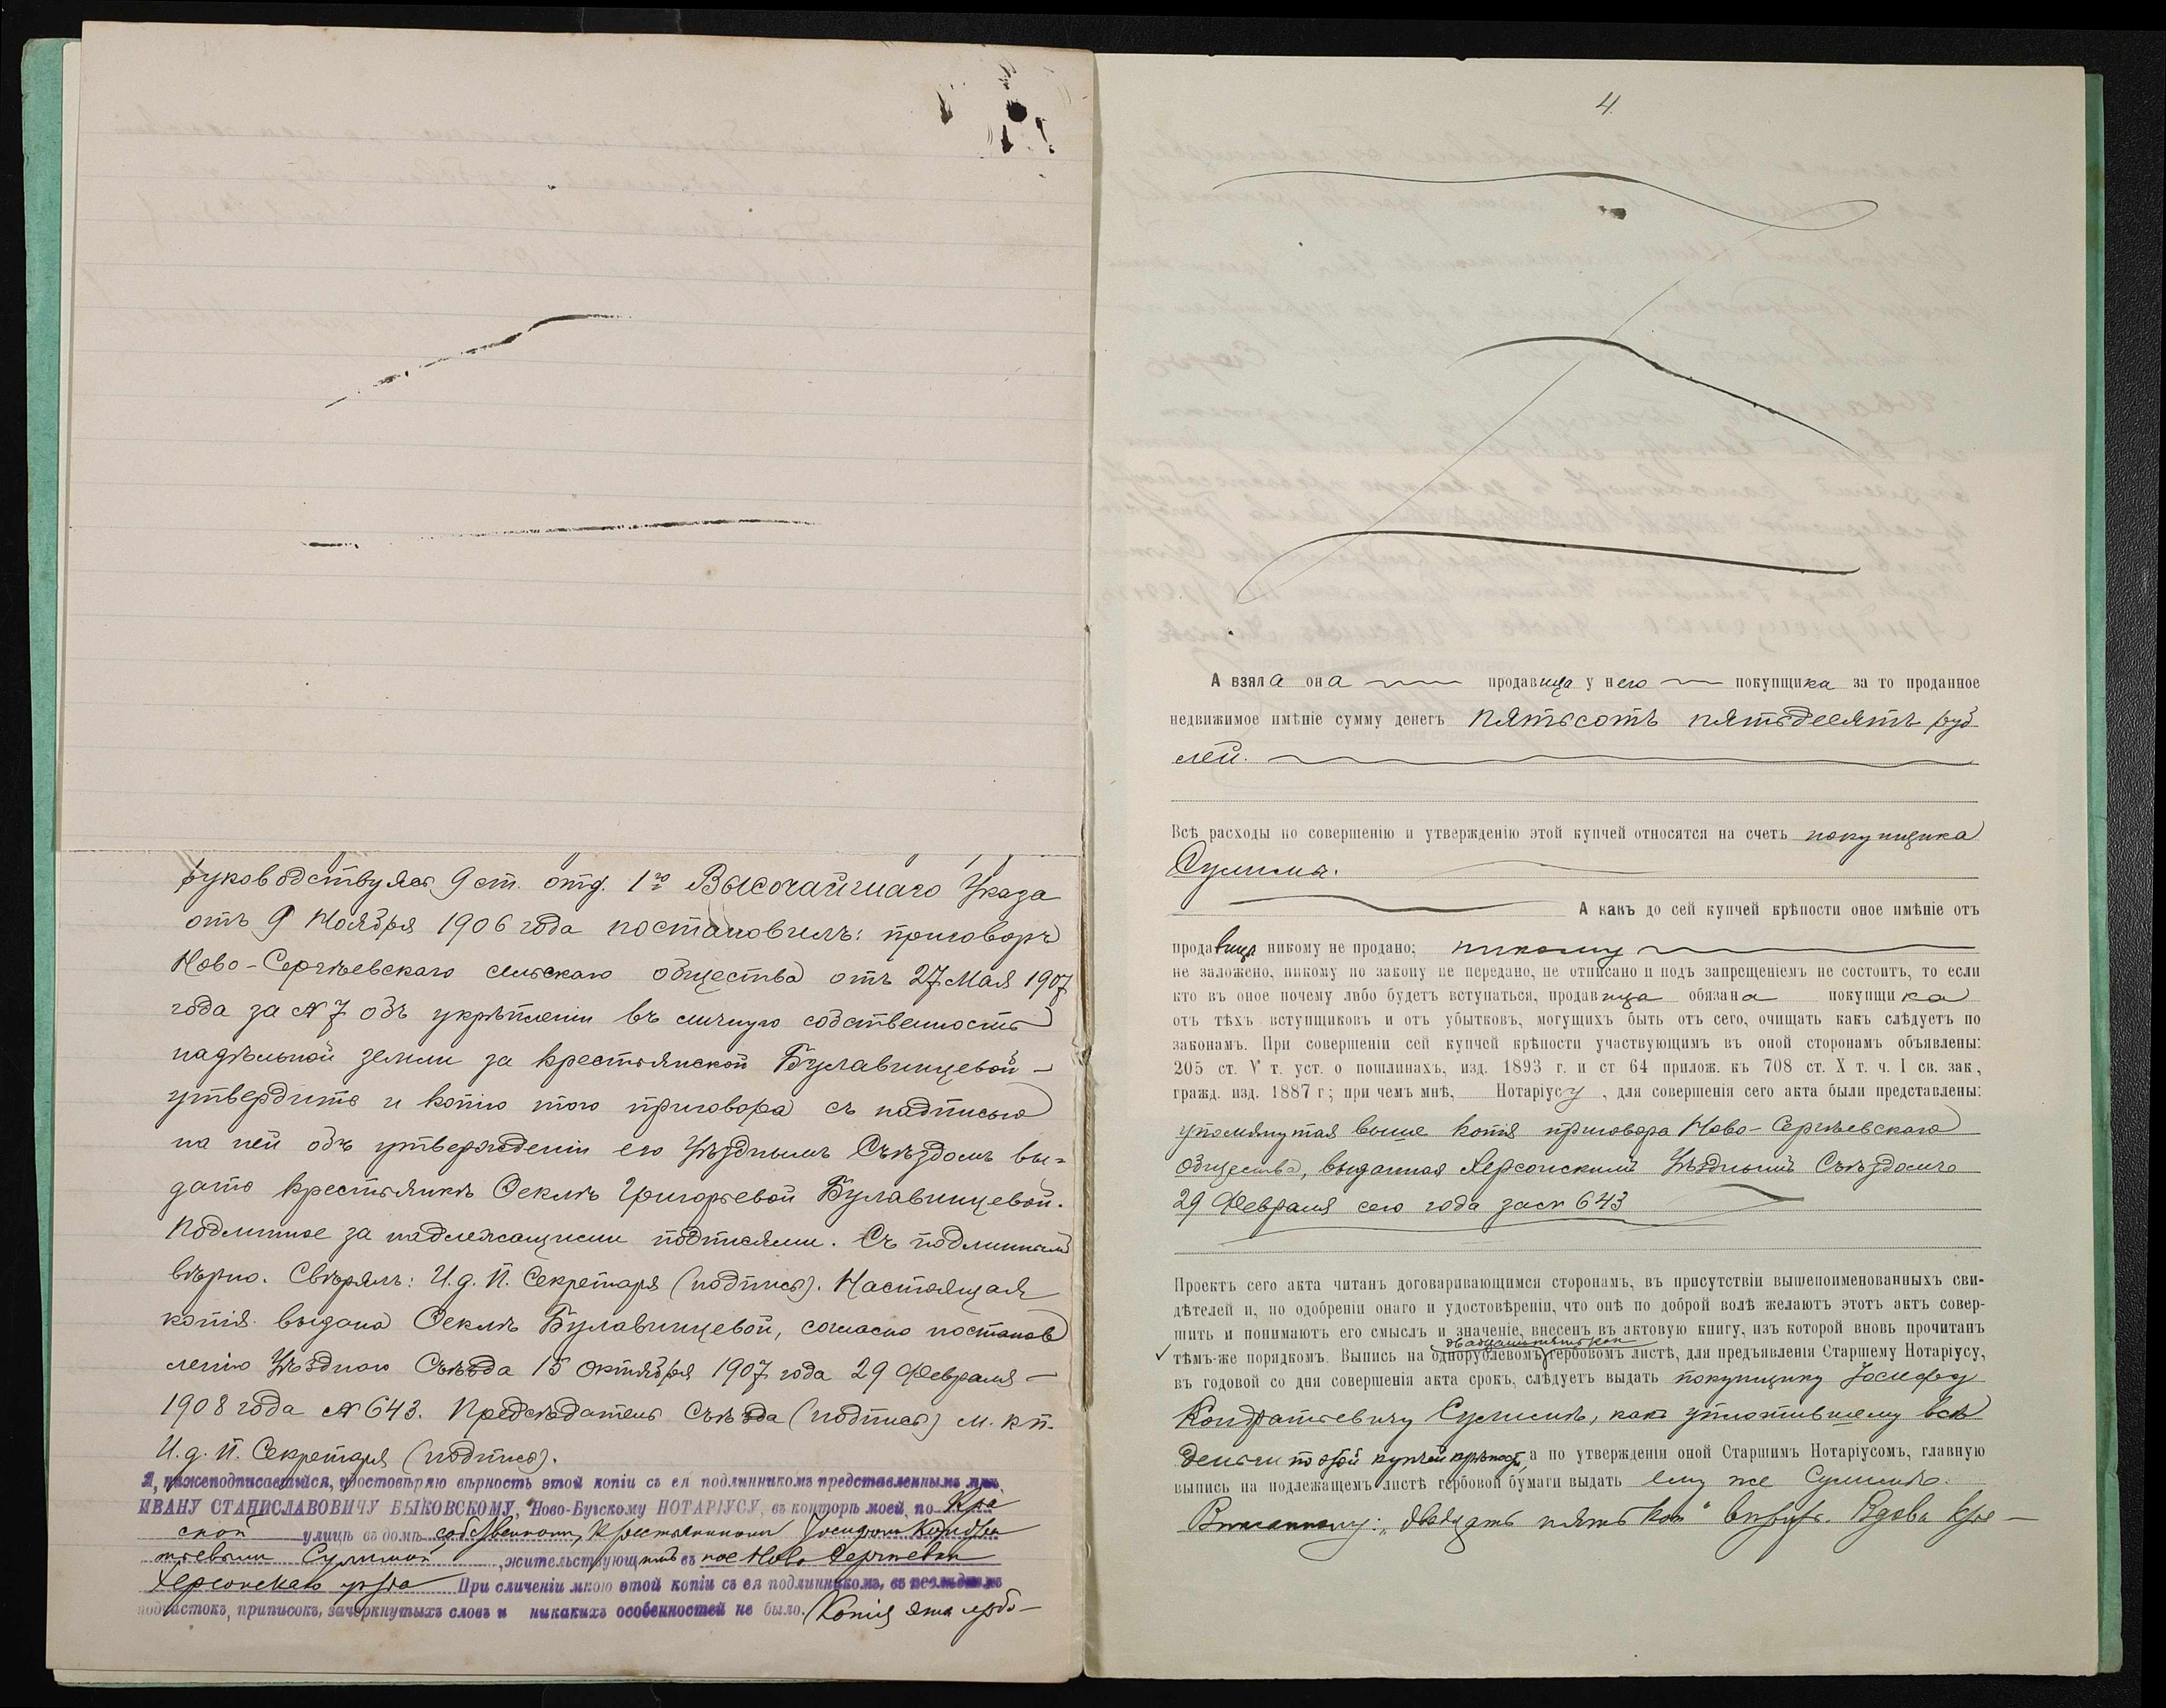 руководствуясь 9 ст. отд. 1го Высочайшаго Указа
отъ 9 Ноября 1906 года постановилъ: приговоръ
Ново-Сергѣевскаго сельскаго общества отъ 27 Мая 1907
года за № 7 объ укрѣпленіи въ личную собственность
надѣльной земли за крестьянской Булавинцевой –
утвердить и копію того приговора съ надписью
на ней объ утвержденіи его Уѣзднымъ Съѣздомъ вы=
дать крестьянкѣ Феклѣ Григорьевой Булавинцевой.
Подлинное за надлежащими подписями. Съ подлиннымъ
вѣрно. Свѣрялъ: И.д. П. Секретаря (подпись). Настоящая
копія выдана Феклѣ Булавинцевой, согласно постанов
ленію Уѣзднаго Съѣзда 15 Октября 1907 года 29 Февраля –
1908 года № 643. Предсѣдатель Съѣзда (подпись) м. к п.
И.д. П. Секретаря (подпись).
Я, нижеподписавшійся, удостовѣряю вѣрность этой копіи съ ея подлинникомъ представленнымъ мнѣ,
ИВАНУ СТАНИСЛАВОВИЧУ БЫКОВСКОМУ, Ново-Бугскому НОТАРІУСУ, въ конторѣ моей, по
улицѣ въ домѣ собственномъ, крестьяниномъ Іосифомъ Кондра
тьевымъ Сулимой, жительствующимъ въ пос Ново Сергѣевкѣ
Херсонскаго уѣзда При сличеніи мною этой копіи съ ея подлинникомъ, въ послѣднемъ
подчистокъ, приписокъ, зачеркнутыхъ словъ и никакихъ особенностей не было. Копія эта
4.
А взяла она продавица у него покупщика за то проданное
недвижимое имѣніе сумму денегъ пятьсотъ пятьдесятъ руб
лей.
Всѣ расходы по совершенію и утвержденію этой купчей относятся на счетъ покупщика
Сулимы.
А какъ до сей купчей крѣпости оное имѣніе отъ
продавица никому не продано; никому
не заложено, никому по закону не передано, не отписано и подъ запрещеніемъ не состоитъ, то если
кто въ оное почему либо будетъ вступаться, продавица обязана покупщика
отъ тѣхъ вступщиковъ и отъ убытковъ, могущихъ быть отъ сего, очищать какъ слѣдуетъ по
законамъ. При совершеніи сей купчей крѣпости участвующимъ въ оной сторонамъ объявлены:
205 ст. V т. уст. о пошлинахъ, изд. 1893 г. и ст 64 прилож. къ 708 ст. X т. ч. I св. зак,
гражд. изд. 1887 г; при чемъ мнѣ, Нотаріусу, для совершенія сего акта были представлены:
упомянутая выше копія приговора Ново-Сергѣевскаго
общества, выданная Херсонскимъ Уѣзднымъ Съѣздомъ
29 Февраля сего года за № 643
Проектъ сего акта читанъ договаривающимся сторонамъ, въ присутствіи вышепоименованныхъ сви-
дѣтелей и, по одобреніи онаго и удостовѣреніи, что онѣ по доброй волѣ желаютъ этотъ актъ совер-
шить и понимаютъ его смыслъ и значеніе, внесенъ въ актовую книгу, изъ которой вновь прочитанъ
двадцать пять коп
тѣмъ-же порядкомъ. Выпись на однорублевомъ гербовомъ листѣ, для предъявленія Старшему Нотаріусу,
въ годовой со дня совершенія акта срокъ, слѣдуетъ выдать покупщику Іосифу
Кондратьевичу Сулимѣ, какъ уплатившему всѣ
деньги по этой купчей крѣпости, а по утвержденіи оной Старшимъ Нотаріусомъ, главную
выпись на подлежащемъ листѣ гербовой бумаги выдать ему же Сулимѣ.
двадцать пять коп" Вдова кре –